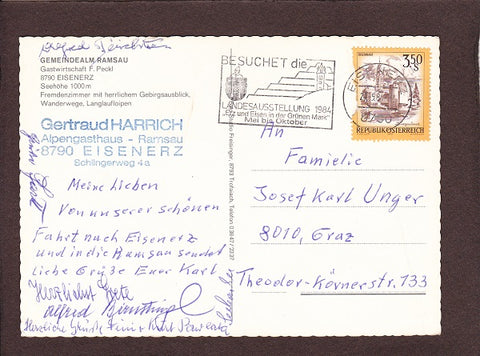 GEMEINDEALM RAMSAU
Gastwirtschaft F. Peckl
8790 EISENERZ
Seehöhe 1000 m
Fremdenzimmer mit herrlichem Gebirgsausblick,
Wanderwege, Langlaufloipen
Gertraud HARRICH
Alpengasthaus - Ramsau
8790 EISENERZ
Schlingerweg 4a
Meine Lieben
Von unserer schönen
Fahrt nach Eisenerz
und in die Ramsau sendet
liche Grüße Euer Karl
Herzlichst Grete
Alfred
Herzliche Grüße
BESUCHET die
LANDESAUSSTELLUNG 1984
"Erz und Eisen in der Grünen Mark"
Mai bis Oktober
EISENERZ
8790
3.50
S
REPUBLIK ÖSTERREICH
Freisinger, 8793 Trofaiach, Telefon 03847/2237
An
Familie
Josef Karl Unger
8010, Graz
Theodor-Körnerstr. 133